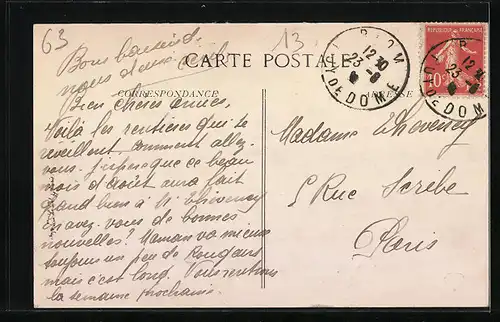 63
13
Bons baisers de
nous deux
CARTE POSTALE
CORRESPONDANCE
ADRESSE
RIOM
PUY DE DOME
12 10
23 - 8
REPUBLIQUE FRANÇAISE
10c
RIOM
PUY DE DOME
12
23 - 8
Bien chères amies,
Voilà les rentières qui se
réveillent comment allez
vous. J'espère que ce beau
mois d'août aura fait
grand bien à Mr Théveney
en avez-vous de bonnes
nouvelles? Maman va mieux
toujours un peu de
mais c'est long. Nous rentrons
la semaine prochaine.
Madame Théveney
5 Rue Scribe
Paris